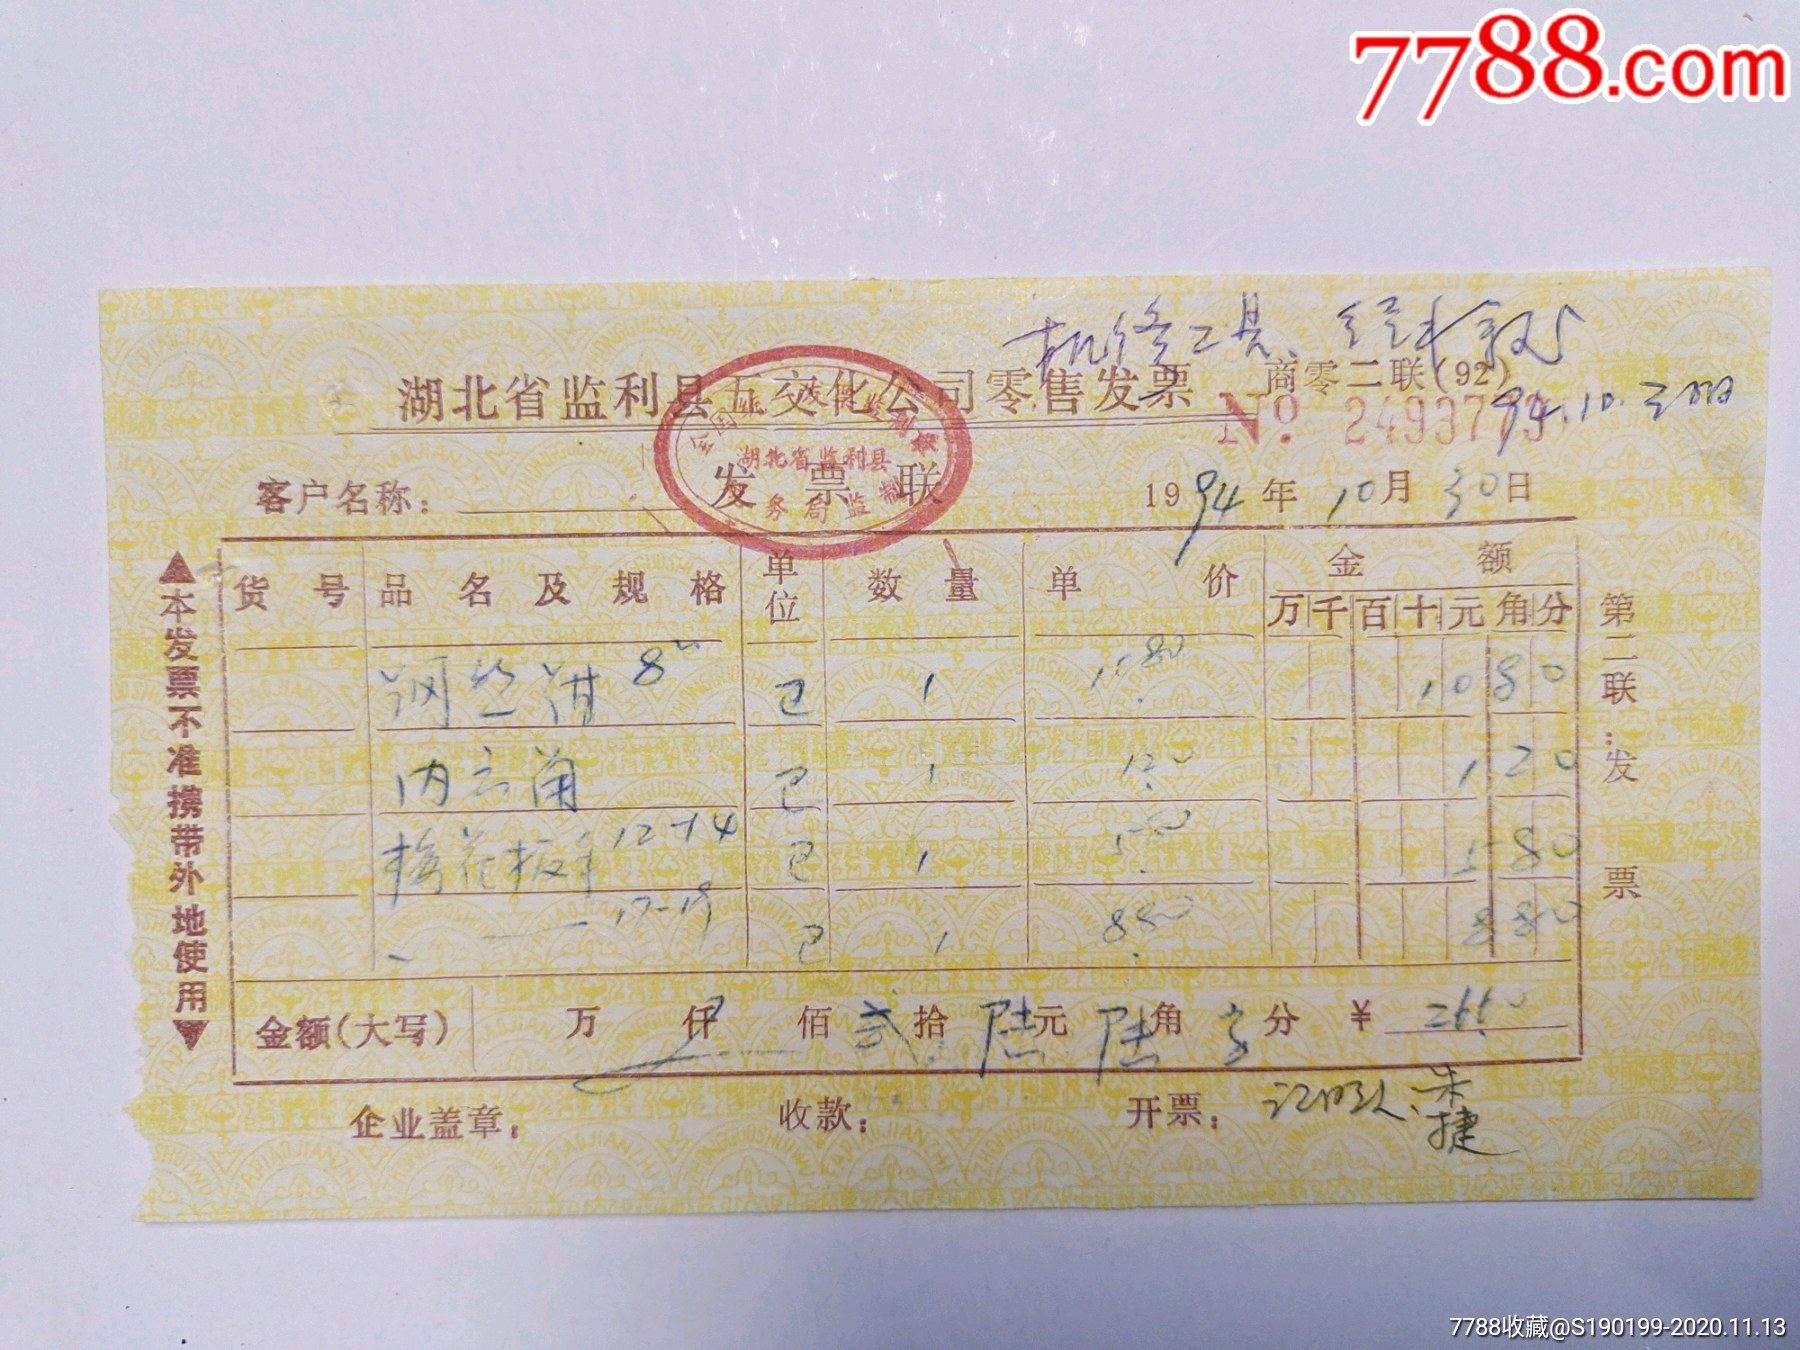 7788.com
机修工具、经手
湖北省监利县五交化公司零售发票
商零二联(92)
94.10.30
No 2493773
全国统一发票监制章
湖北省监利县
税务局监制
发票联
客户名称:
1994年10月30日
货号 品名及规格 单位 数量 单价 金额
万千百十元角分
钢丝钳 8" 1 10.80 10 8 0
内六角 1 1.20 1 2 0
梅花扳手 12-14 1 5.80 5 8 0
17-19 1 8.80 8 8 0
金额(大写) 万 仟 佰 贰拾陆元陆角零分 ¥ 26.60
企业盖章: 收款: 开票:
证明人:朱捷
▲本发票不准携带外地使用▼
第二联:发票
7788收藏@S190199-2020.11.13